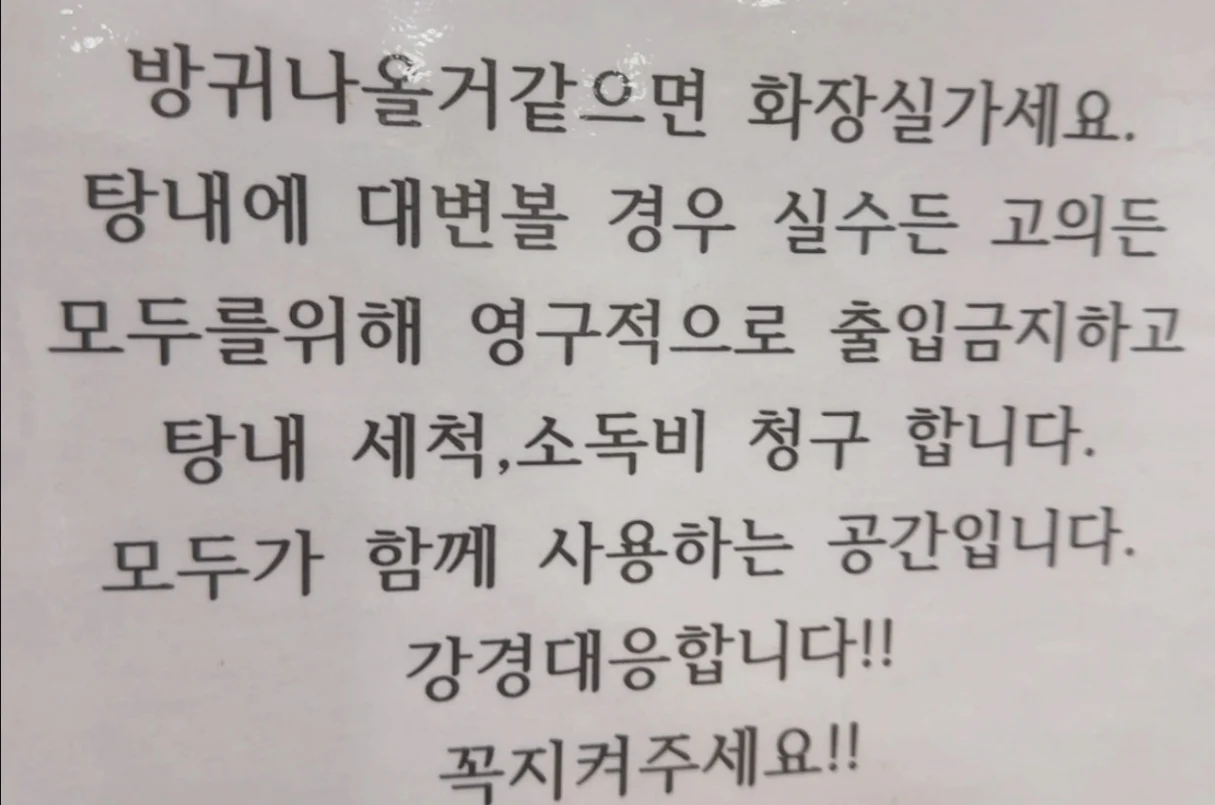 방귀나올거같으면 화장실가세요.
탕내에 대변볼 경우 실수든 고의든
모두를위해 영구적으로 출입금지하고
탕내 세척,소독비 청구 합니다.
모두가 함께 사용하는 공간입니다.
강경대응합니다!!
꼭지켜주세요!!